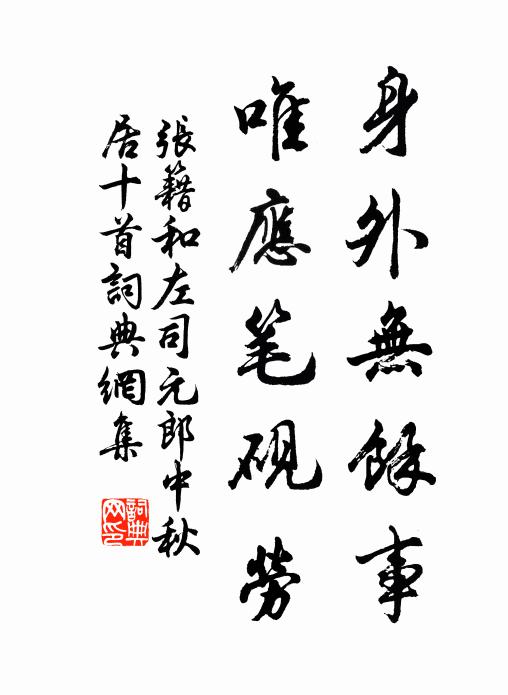 身外無餘事
唯應笔硯勞
張籍和左司元郎中秋
居十首詞典網集
詞典
网印